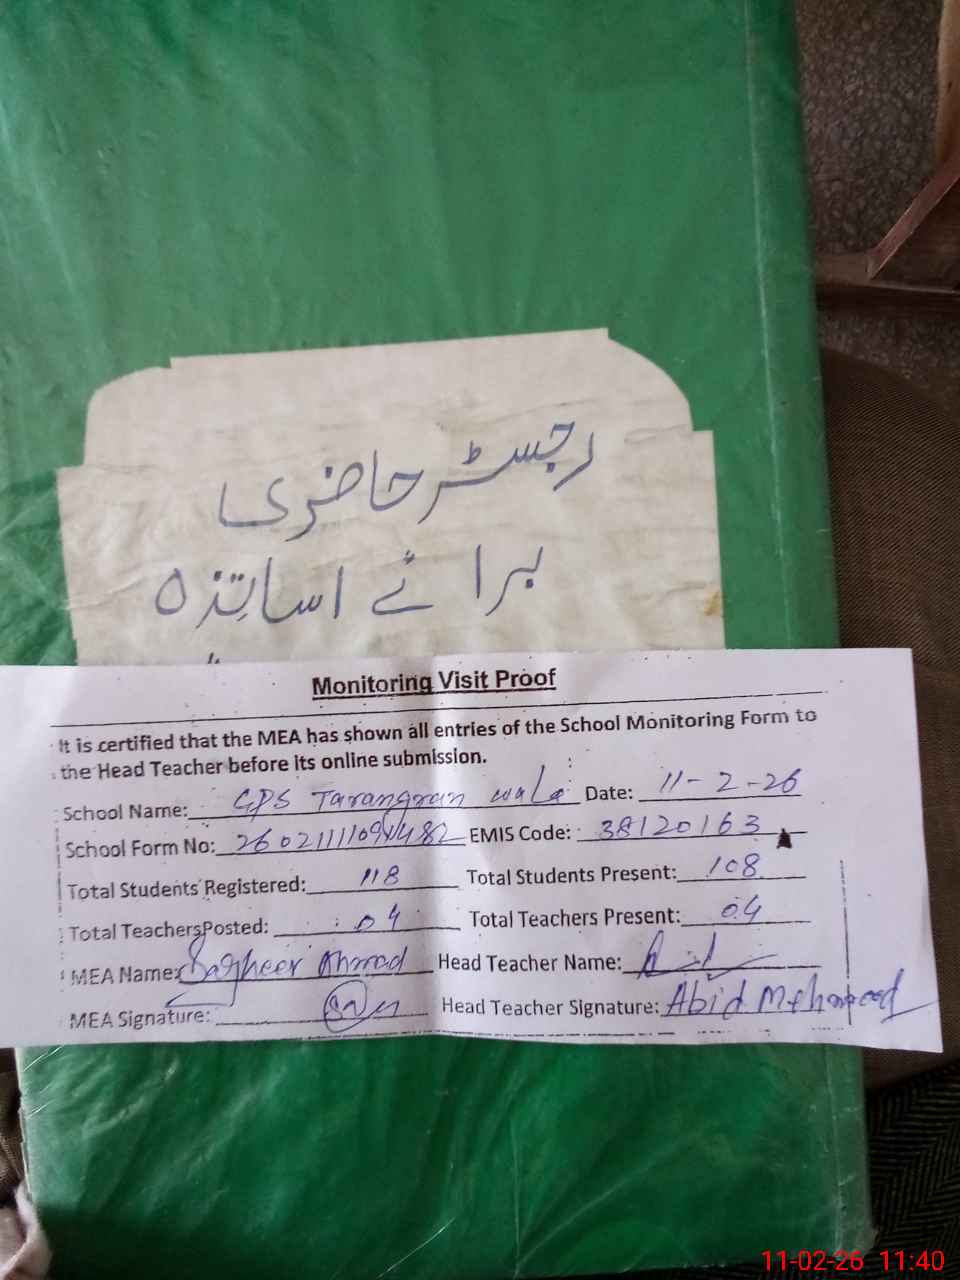 رجسٹر حاضری
برائے اساتذہ
Monitoring Visit Proof
It is certified that the MEA has shown all entries of the School Monitoring Form to
the Head Teacher before its online submission.
School Name: GPS Tarangran wala Date: 11-2-26
School Form No: EMIS Code: 38120163
Total Students Registered: 118 Total Students Present: 108
Total TeachersPosted: 04 Total Teachers Present: 04
MEA Name: Sagheer Ahmad Head Teacher Name:
MEA Signature: Head Teacher Signature: Abid Mehmood
11-02-26 11:40